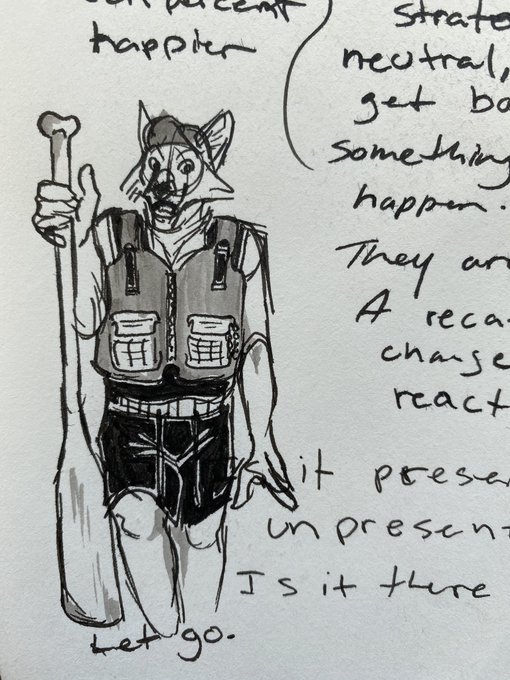 ten percent
happier
strate
neutral,
get bo
something
happen.
They are
A reca
change
react
it presen
unpresent
Is it there
Let go.